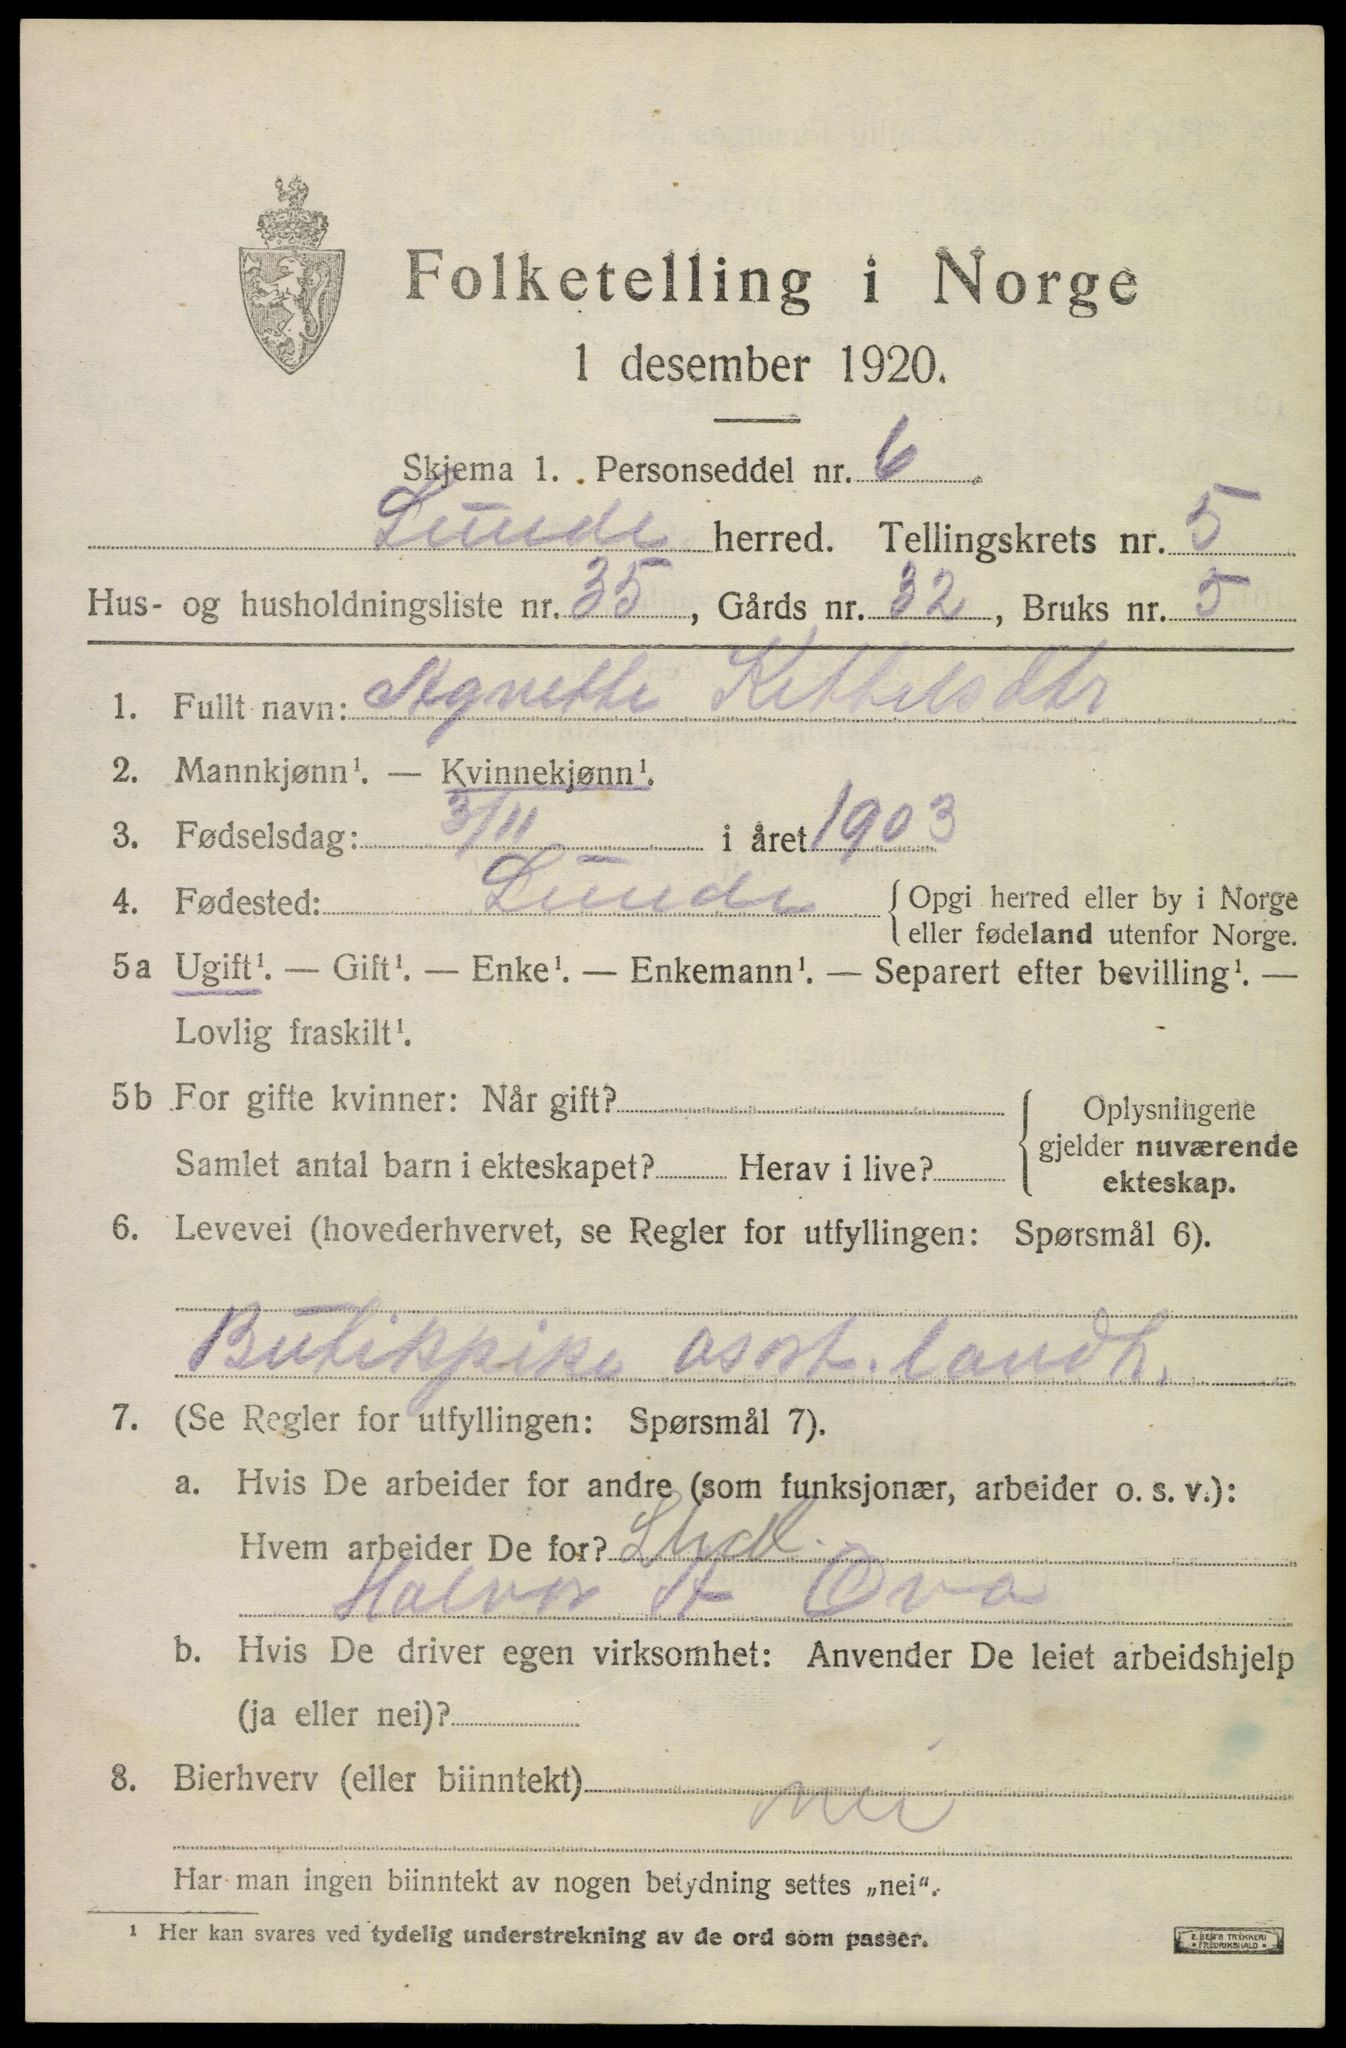 Folketelling i Norge
1 desember 1920.
Skjema 1. Personseddel nr. 6.
Lunde herred. Tellingskrets nr. 5
Hus- og husholdningsliste nr. 35, Gårds nr. 32, Bruks nr. 5
1. Fullt navn: Agnethe Kittilsdtr
2. Mannkjønn¹. — Kvinnekjønn¹.
3. Fødselsdag: 3/11 i året 1903
4. Fødested: Lunde { Opgi herred eller by i Norge
eller fødeland utenfor Norge.
5a Ugift¹. — Gift¹. — Enke¹. — Enkemann¹. — Separert efter bevilling¹. —
Lovlig fraskilt¹.
5b For gifte kvinner: Når gift? { Oplysningene
gjelder nuværende
Samlet antal barn i ekteskapet? Herav i live?
ekteskap.
6. Levevei (hovederhvervet, se Regler for utfyllingen: Spørsmål 6).
Butikkpike asort. landh.
7. (Se Regler for utfyllingen: Spørsmål 7).
a. Hvis De arbeider for andre (som funksjonær, arbeider o. s. v.):
Hvem arbeider De for?
Halvor Ova
b. Hvis De driver egen virksomhet: Anvender De leiet arbeidshjelp
(ja eller nei)?
8. Bierhverv (eller biinntekt) nei
Har man ingen biinntekt av nogen betydning settes „nei“.
¹ Her kan svares ved tydelig understrekning av de ord som passer.
E. SEM'S TRYKKERI
• FREDRIKSHALD •